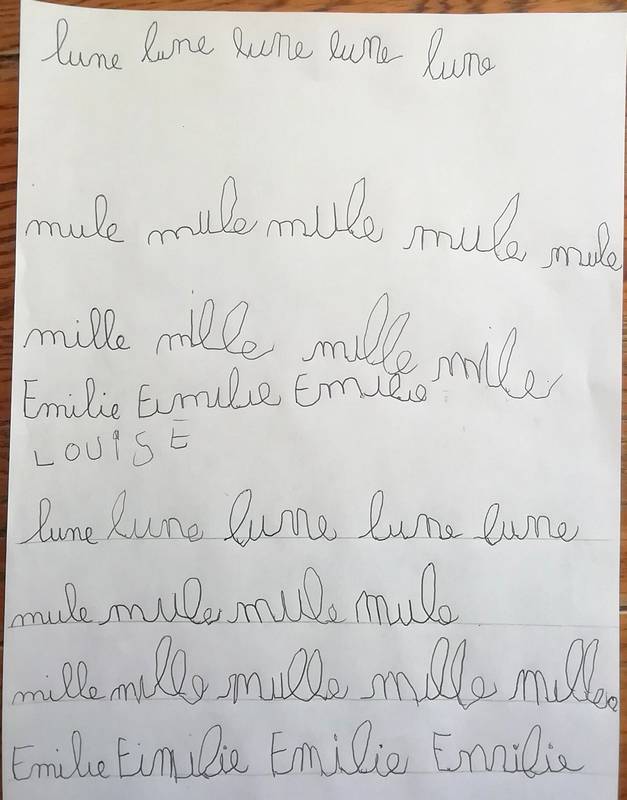 lune lune lune lune lune
mule mule mule mule mule
mille mille mille mile
Emilie Eimilie Emilie
LOUISE
lune lune lune lune lune
mule mule mule mule
mille mille mille mille mille
Emilie Eimilie Emilie Emilie